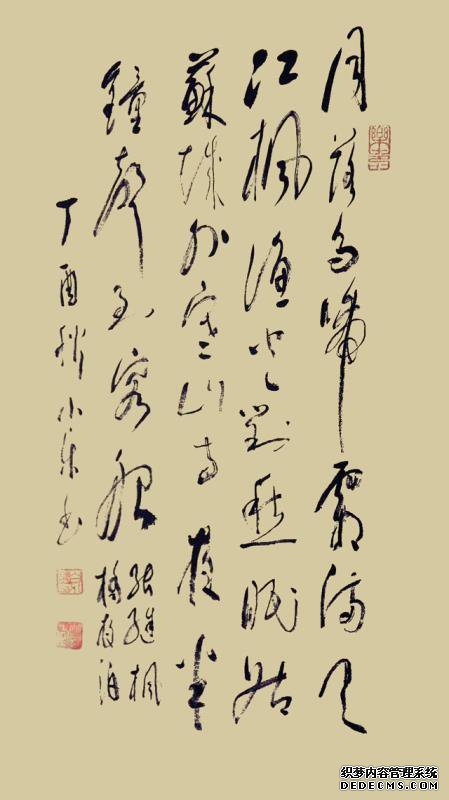 月落乌啼霜满天
江枫渔火對愁眠姑
蘇城外寒山寺夜半
鐘聲到客船
张继枫
橋夜泊
丁酉秋小书
织梦内容管理系统
DEDECMS.COM